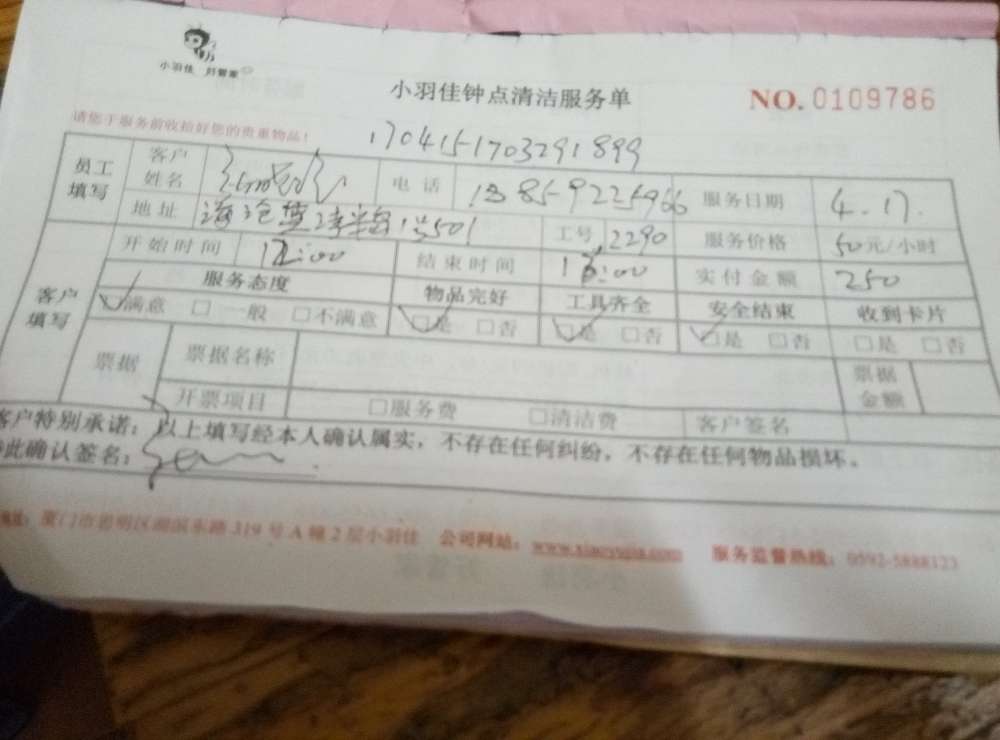 小羽佳 好管家
小羽佳钟点清洁服务单
NO. 0109786
请您于服务前收拾好您的贵重物品！
170415-1703291899
员工填写 客户姓名 电话 13859225966 服务日期 4.17.
地址 1号501 工号 2290 服务价格 50元/小时
客户填写 开始时间 结束时间 实付金额 250
服务态度 物品完好 工具齐全 安全结束 收到卡片
☑满意 □一般 □不满意 ☑是 □否 ☑是 □否 ☑是 □否 □是 □否
票据 票据名称 票据金额
开票项目 □服务费 □清洁费 客户签名
客户特别承诺：以上填写经本人确认属实，不存在任何纠纷，不存在任何物品损坏。
此确认签名：
厦门市思明区湖滨东路 319 号 A 幢 2 层小羽佳 公司网站：www.xiaoyujia.com 服务监督热线：0592-5888123